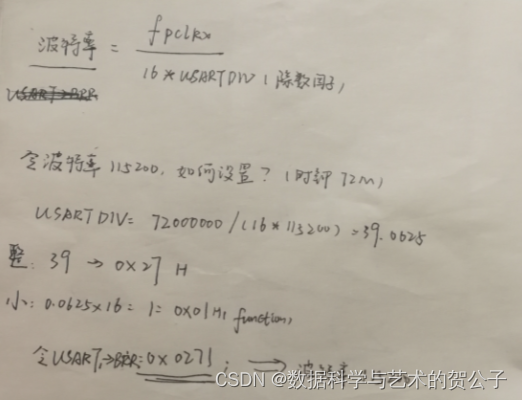 波特率 = fpclkx
16 * USARTDIV (除数因子)
USART->BRR
令波特率 115200, 如何设置? (时钟 72M)
USARTDIV = 72000000 / (16 * 115200) = 39.0625
整: 39 → 0x27 H
小: 0.0625x16 = 1 = 0x01H, function,
令USART1->BRR = 0x0271; → 波特率
CSDN @数据科学与艺术的贺公子